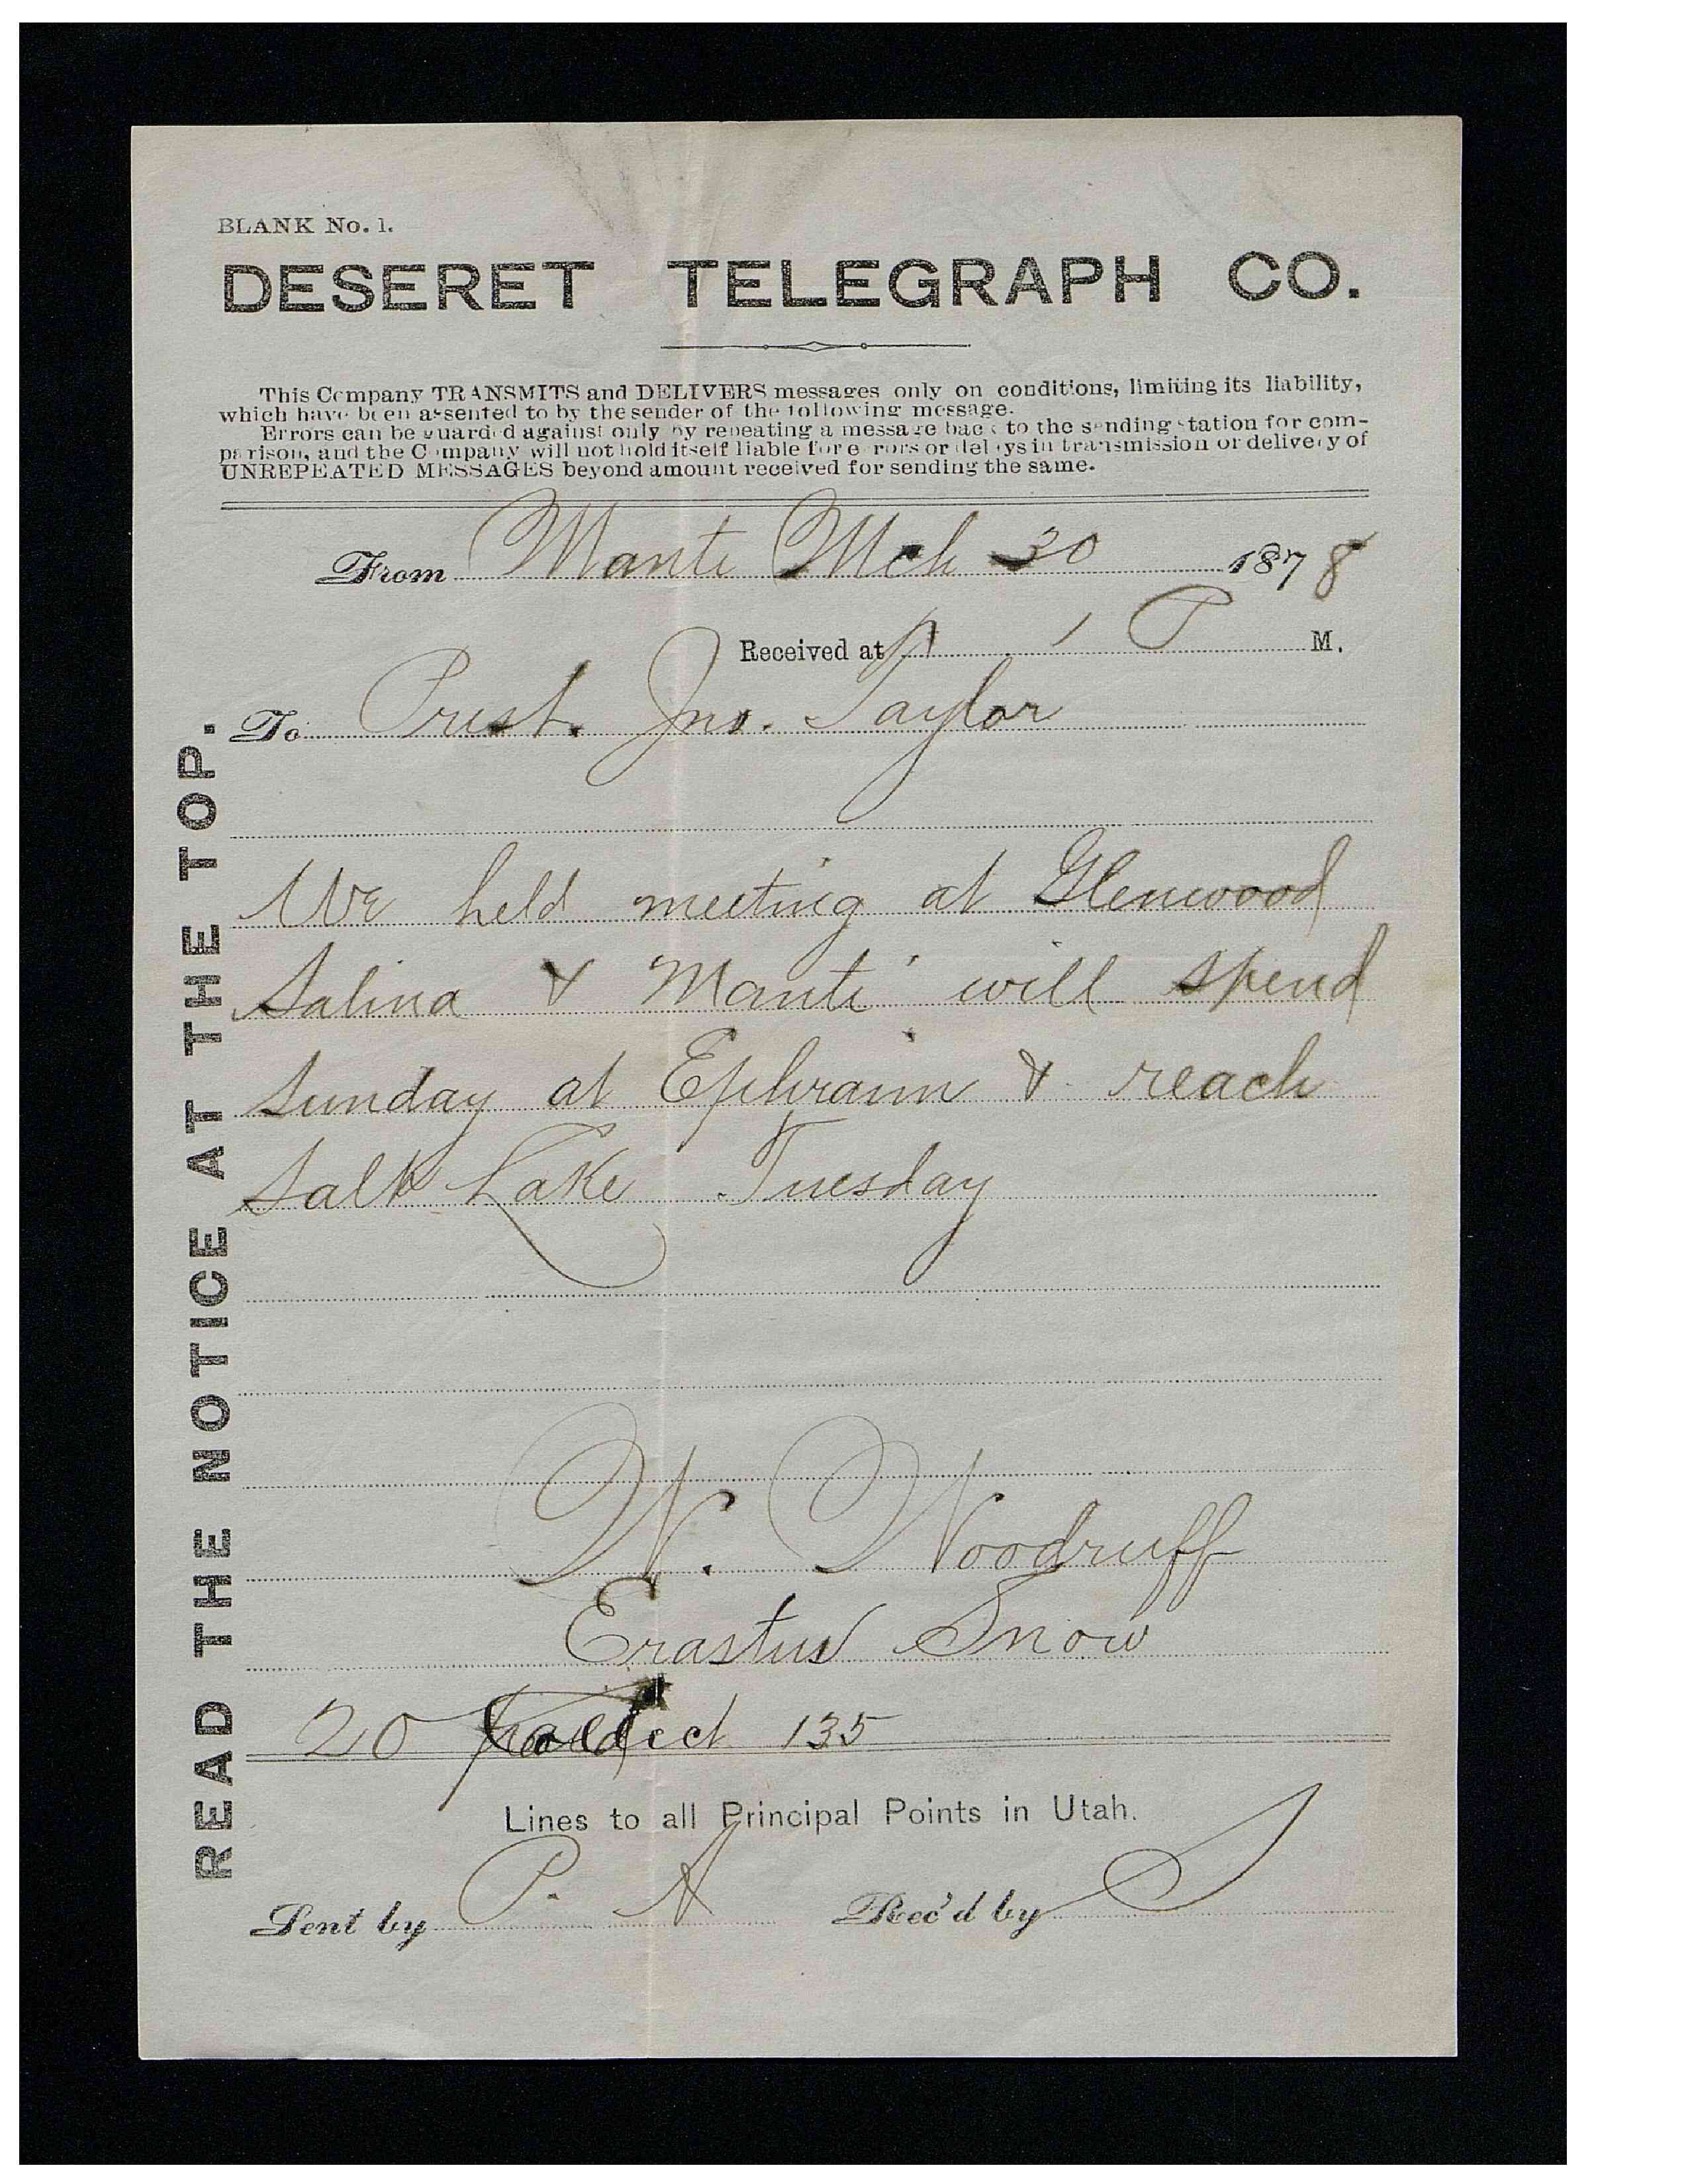 BLANK No. 1.
DESERET TELEGRAPH CO.
This Company TRANSMITS and DELIVERS messages only on conditions, limiting its liability,
which have been assented to by the sender of the following message.
Errors can be guarded against only by repeating a message back to the sending station for com-
parison, and the Company will not hold itself liable for errors or delays in transmission or delivery of
UNREPEATED MESSAGES beyond amount received for sending the same.
From Manti Mch 30 1878
Received at 1 P M.
To Prest. Jno. Taylor
We held meeting at Glenwood
Salina & Manti will spend
Sunday at Ephraim & reach
Salt Lake Tuesday
W. Woodruff
Erastus Snow
20 Collect 135
Lines to all Principal Points in Utah.
Sent by P. A Rec'd by S
READ THE NOTICE AT THE TOP.